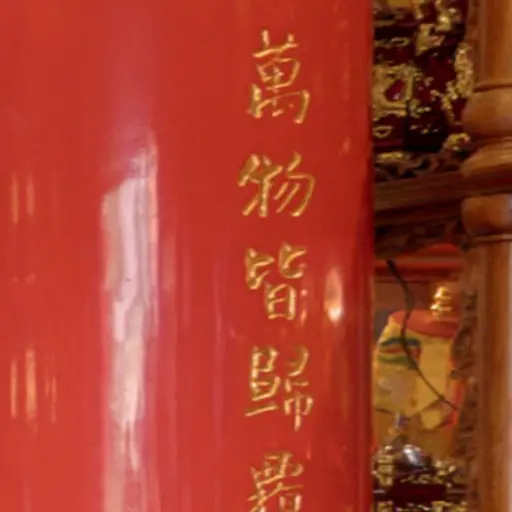 萬物皆歸